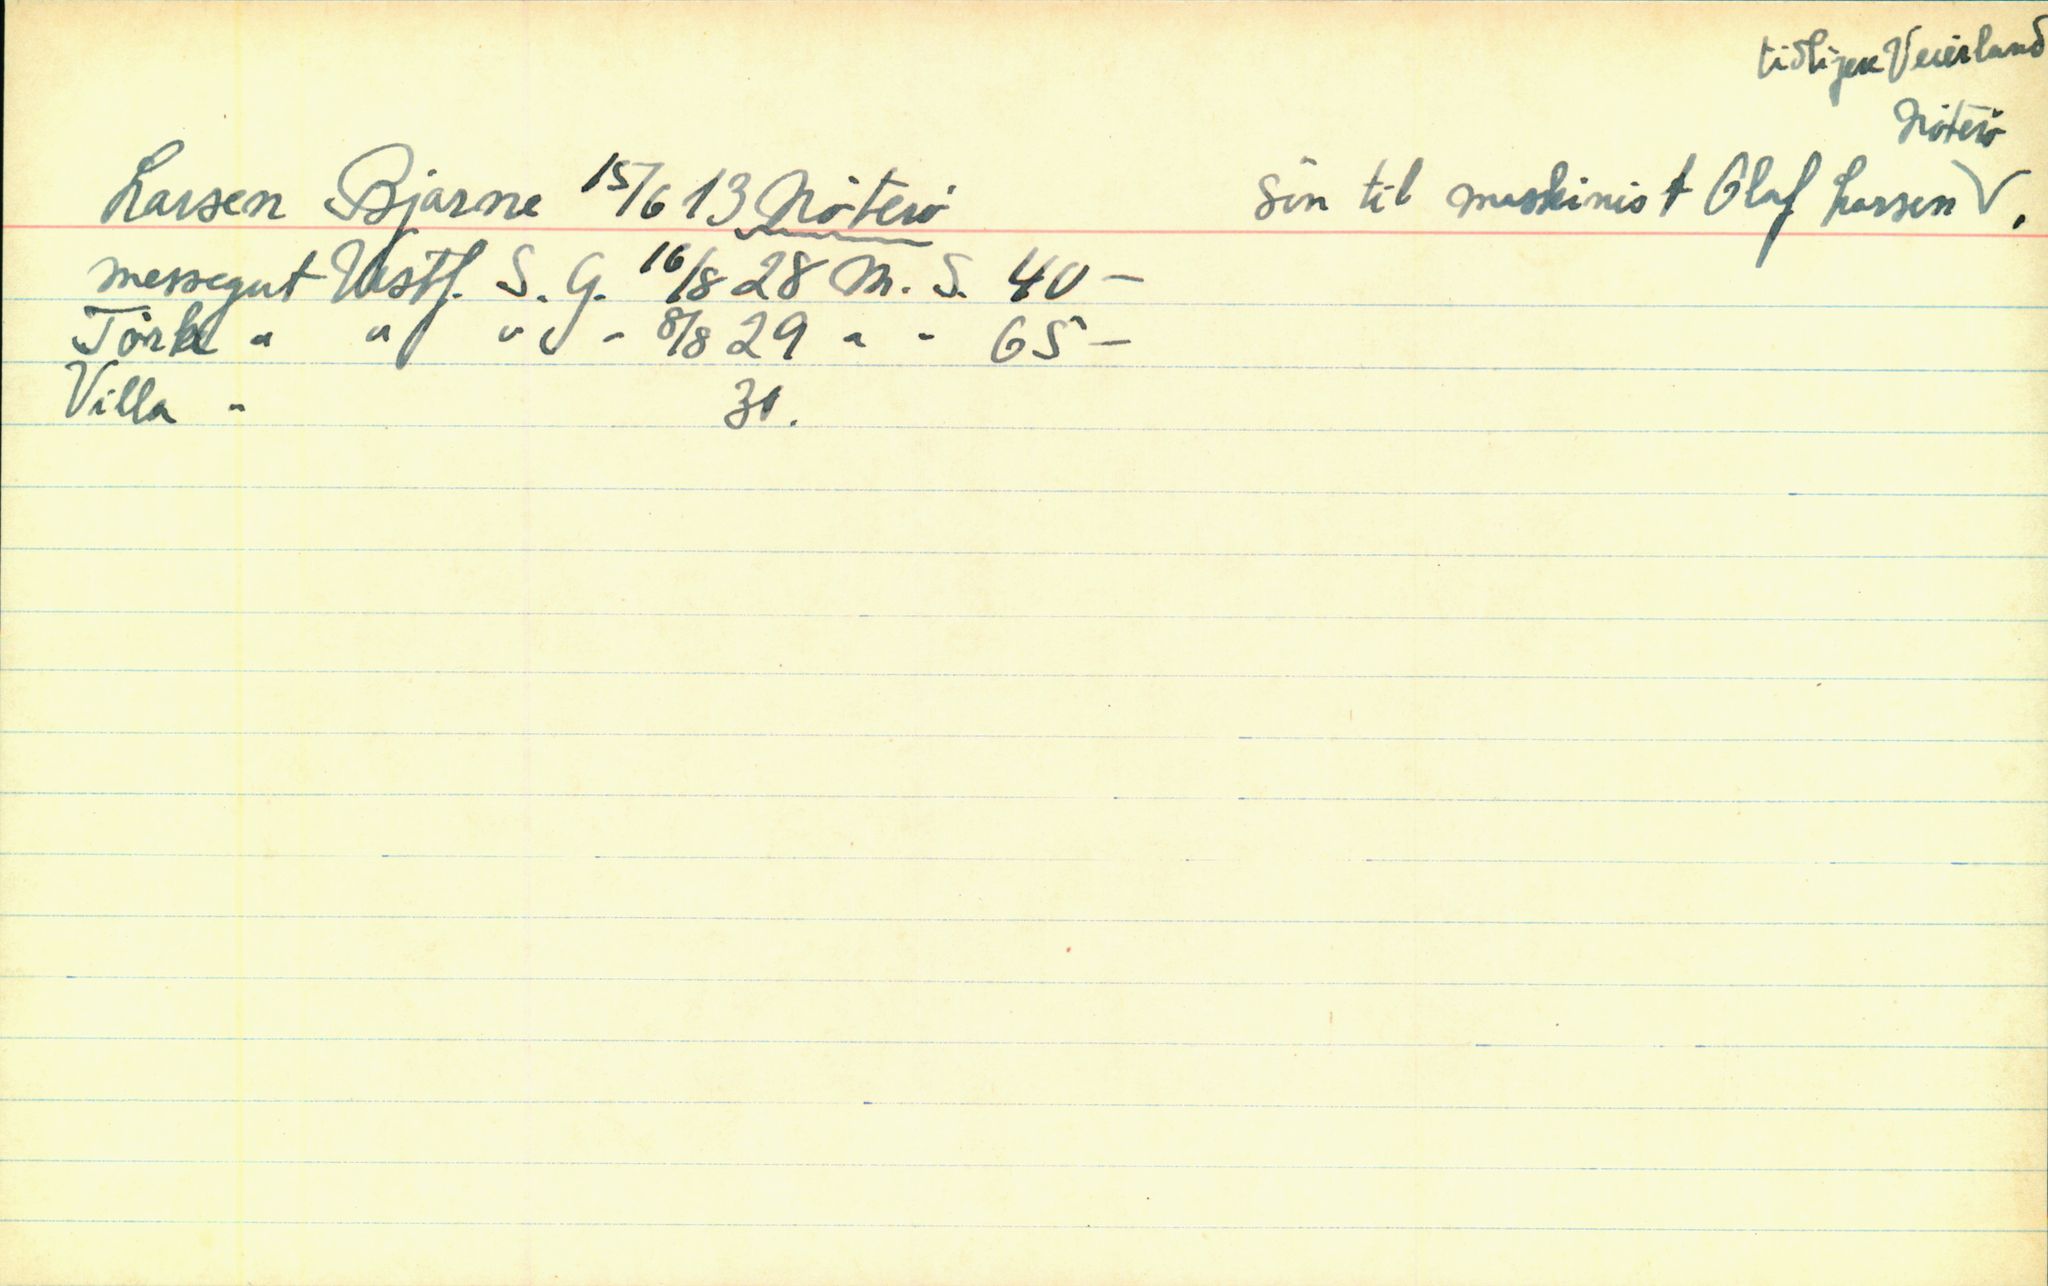 tidligere Veierland
Nöterö
Larsen Bjarne 15/6 13 Nöterö sön til maskinist Olaf Larsen V.
messegut Vestf. S. G. 16/8 28 M. S. 40 -
Törke " " " " 8/8 29 " " 65 -
Villa " 30.